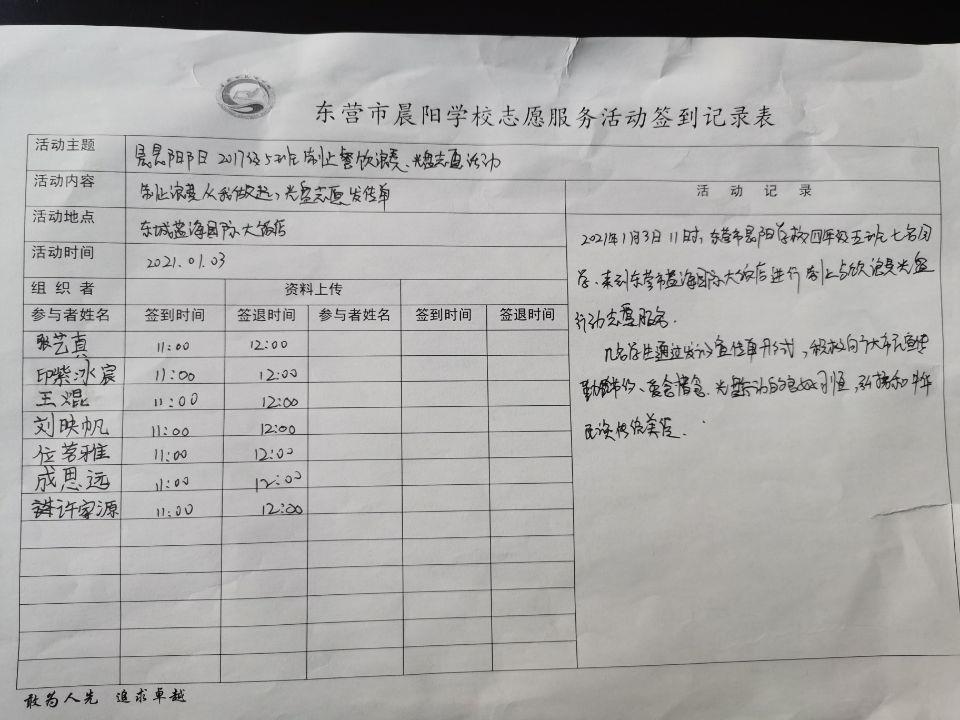 东营市晨阳学校志愿服务活动签到记录表
活动主题 晨阳阳日 2017级5班制止餐饮浪费、光盘志愿活动
活动内容 制止浪费从我做起,光盘志愿发传单
活动地点 东城蓝海国际大饭店
活动时间 2021.01.03
组织者 资料上传
参与者姓名 签到时间 签退时间 参与者姓名 签到时间 签退时间
张艺真 11:00 12:00
印紫冰宸 11:00 12:00
王焜 11:00 12:00
刘映帆 11:00 12:00
位茗雅 11:00 12:00
成思远 11:00 12:00
许家源 11:00 12:00
活动记录
2021年1月3日11时,东营市晨阳学校四年级五班七名同
学,来到东营市蓝海国际大饭店进行制止餐饮浪费光盘
行动志愿服务.
几名学生通过发放宣传单形式,积极向广大市民宣传
勤俭节约、爱惜粮食、光盘行动的良好习惯,弘扬和
民族传统美德.
敢为人先 追求卓越